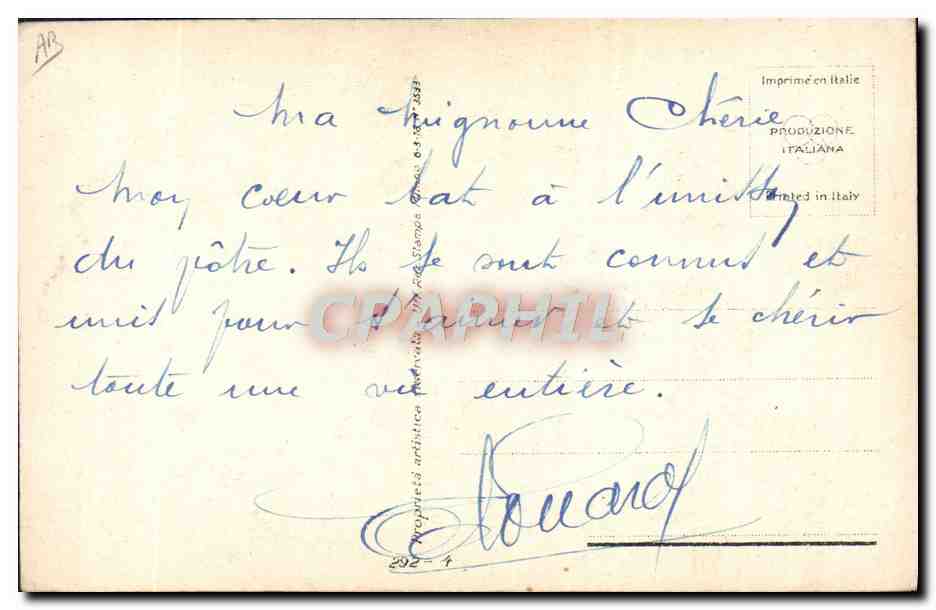 AB
Imprimé en Italie
PRODUZIONE
ITALIANA
Printed in Italy
Ma mignonne Chérie
Mon coeur bat à l'unisson
du nôtre. Ils se sont connus et
unis pour s'aimer et se chérir
toute une vie entière.
Proprietà artistica riservata
292-4
CPAPHIL